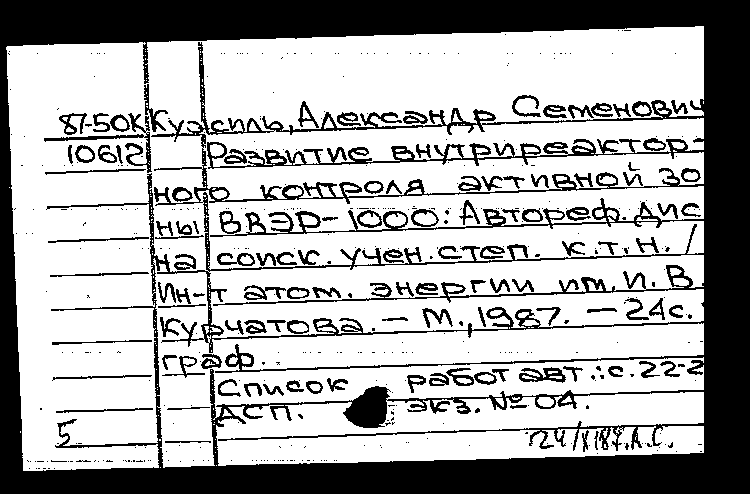 87-50К Кужсиль, Александр Семенович
10612 Развитие внутриреактор-
ного контроля активной зо
ны ВВЭР-1000: Автореф. дис
на соиск. учен. степ. к.т.н. /
Ин-т атом. энергии им. И. В.
Курчатова. — М., 1987. — 24с.
граф.
Список работ авт.: с. 22-2
ДСП. экз. № 04.
5